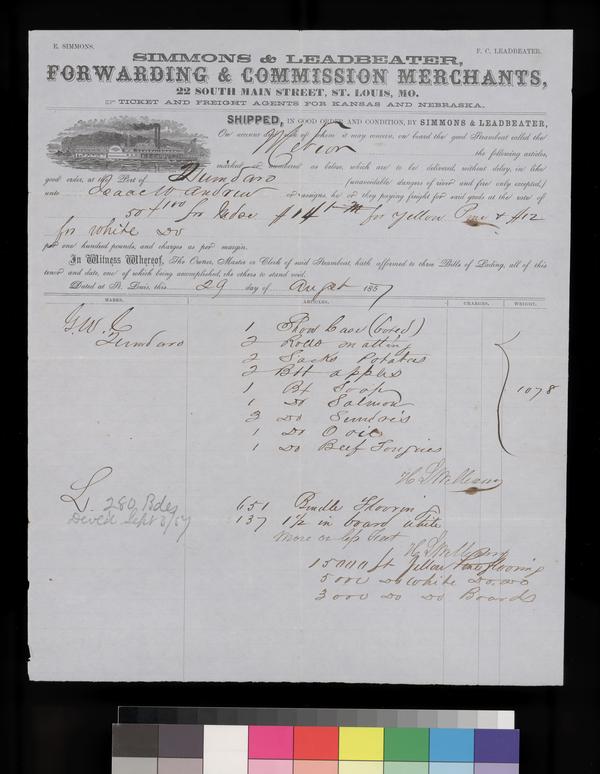 E. SIMMONS.
F. C. LEADBEATER.
SIMMONS & LEADBEATER,
FORWARDING & COMMISSION MERCHANTS,
22 SOUTH MAIN STREET, ST. LOUIS, MO.
TICKET AND FREIGHT AGENTS FOR KANSAS AND NEBRASKA.
SHIPPED, IN GOOD ORDER AND CONDITION, BY SIMMONS & LEADBEATER,
On account and risk of whom it may concern, on board the good Steamboat called the
the following articles,
marked or numbered as below, which are to be delivered, without delay, in like
good order, at the Port of Quindaro (unavoidable dangers of river and fire only excepted,)
unto Isaac W Andrew or assigns, he or they paying freight for said goods at the rate of
50 for $14 M for Yellow Pine & $12
for white Do
per one hundred pounds, and charges as per margin.
In Witness Whereof, The Owner, Master or Clerk of said Steamboat, hath affirmed to three Bills of Lading, all of this
tenor and date, one of which being accomplished, the others to stand void.
Dated at St. Louis, this 29 day of August 1857
MARKS. ARTICLES. CHARGES. WEIGHT.
G. W. C 1 Show Case (boxed)
Quindaro 2 Rolls matting
2 Sacks Potatoes
2 Bbl apples
1 Bx Soap
1 Do Salmon
3 Do Sundries
1 Do
1 Do Beef Tongues
1078
L. 280 Bdes
Deved Sept 3/57
651 Bundle Flooring
137 1½ in board white
more or less feet
15000 ft Yellow Pine flooring
5000 Do White Do Do
3000 Do Do Boards